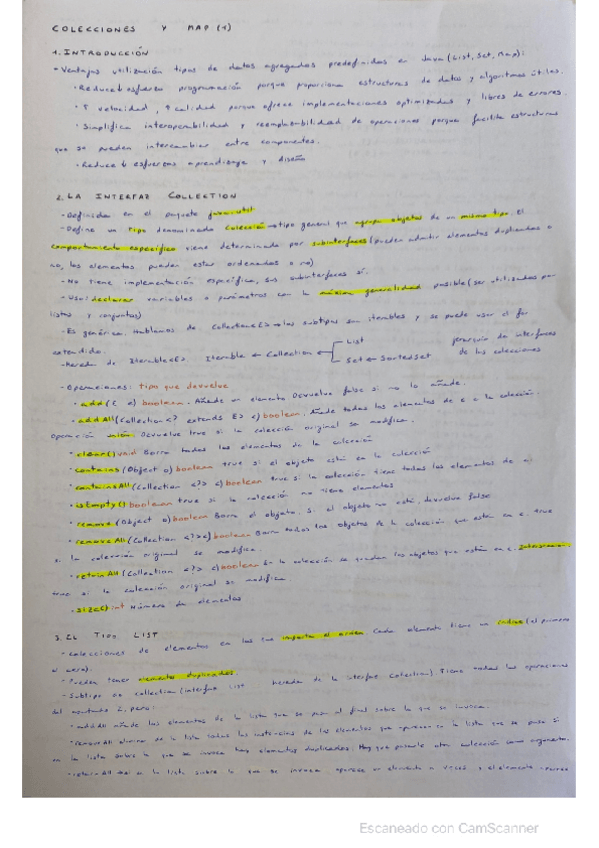 COLECCIONES Y MAP (1)
1. INTRODUCCIÓN
- Ventajas utilización tipos de datos agregados predefinidos en Java (List, Set, Map):
· Reduce esfuerzo programación porque proporciona estructuras de datos y algoritmos útiles.
· ↑ velocidad, ↑ calidad porque ofrece implementaciones optimizadas y libres de errores.
· Simplifica interoperabilidad y reemplazabilidad de operaciones porque facilita estructuras
que se pueden intercambiar entre componentes.
· Reduce esfuerzos aprendizaje y diseño
2. LA INTERFAZ COLLECTION
- Definida en el paquete java.util
- Define un tipo denominado colección → tipo general que agrupa objetos de un mismo tipo. El
comportamiento específico viene determinado por subinterfaces (pueden admitir elementos duplicados o
no, los elementos pueden estar ordenados o no)
- No tiene implementación específica, sus subinterfaces sí.
- Uso: declarar variables o parámetros con la máxima generalidad posible (ser utilizados por
listas y conjuntos)
- Es genérica. Hablamos de Collection<E> → los subtipos son iterables y se puede usar el for
extendido.
- Hereda de Iterable<E> Iterable ← Collection ← List
Set ← SortedSet
jerarquía de interfaces
de las colecciones
- Operaciones: tipo que devuelve
· add(E e) boolean. Añade un elemento. Devuelve false si no lo añade.
· addAll(Collection<? extends E> c) boolean. Añade todos los elementos de c a la colección.
Operación unión. Devuelve true si la colección original se modifica.
· clear() void Borra todos los elementos de la colección
· contains(Object o) boolean true si el objeto está en la colección
· containsAll(Collection <?> c) boolean true si la colección tiene todos los elementos de c
· isEmpty() boolean true si la colección no tiene elementos
· remove(Object o) boolean Borra el objeto, si el objeto no está, devuelve false
· removeAll(Collection <?> c) boolean Borra todos los objetos de la colección que están en c. true
si la colección original se modifica.
· retainAll(Collection <?> c) boolean En la colección se quedan los objetos que están en c. Intersección.
true si la colección original se modifica
· size() int Número de elementos
3. EL TIPO LIST
- colecciones de elementos en las que importa el orden. Cada elemento tiene un índice (el primero
el cero).
- Pueden tener elementos duplicados.
- Subtipo de collection (interfaz List hereda de la interfaz Collection). Tiene todas las operaciones
del apartado 2, pero:
· addAll añade los elementos de la lista que se pasa al final sobre la que se invoca.
· removeAll elimina de la lista todas las instancias de los elementos que aparecen en la lista que se pasa si
en la lista sobre la que se invoca hay elementos duplicados. Hay que pasarle otra colección como argumento.
· retainAll en la lista sobre la que se invoca aparece un elemento n veces y el elemento
Escaneado con CamScanner